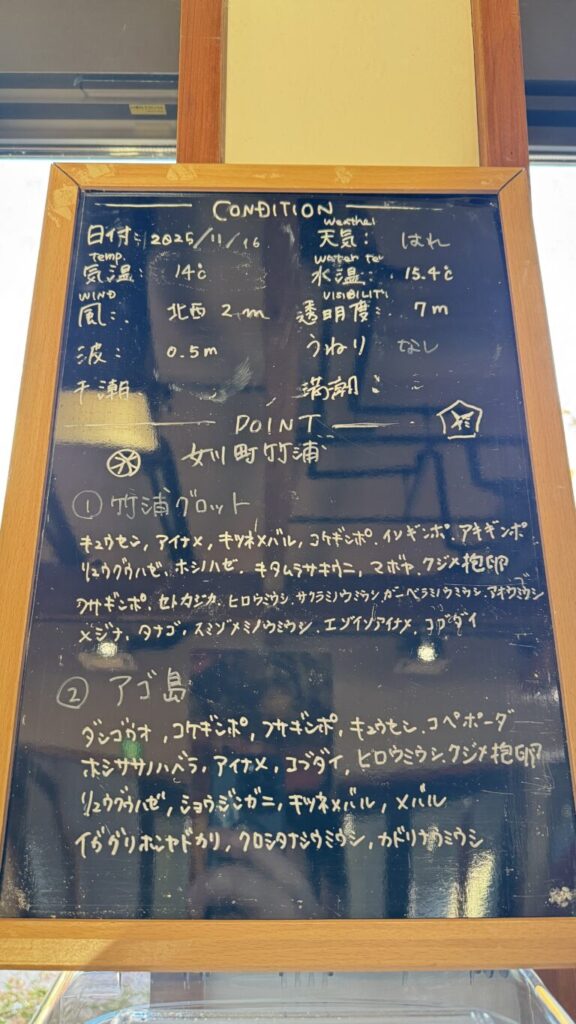 CONDITION
日付: 2025/11/16
weather
天気: はれ
temp.
気温: 14℃
water te
水温: 15.4℃
WIND
風: 北西 2m
VISIBILITY
透明度: 7m
波: 0.5m
うねり なし
干潮
満潮:
POINT
女川町竹浦
① 竹浦グロット
キュウセン, アイナメ, キツネメバル, コケギンポ, イソギンポ, アキギンポ
リュウグウハゼ, ホシノハゼ, キタムラサキウニ, マボヤ, クジメ抱卵
フサギンポ, セトカジカ, ヒロウミウシ, サクラミノウミウシ, ガーベラミノウミウシ, アオウミウシ
メジナ, タナゴ, スミゾメミノウミウシ, エゾイソアイナメ, コブダイ
② アゴ島
ダンゴウオ, コケギンポ, フサギンポ, キュウセン, コペポーダ
ホシササノハベラ, アイナメ, コブダイ, ヒロウミウシ, クジメ抱卵
リュウグウハゼ, ショウジンガニ, キツネメバル, メバル
イガグリホンヤドカリ, クロシタナシウミウシ, カドリナウミウシ